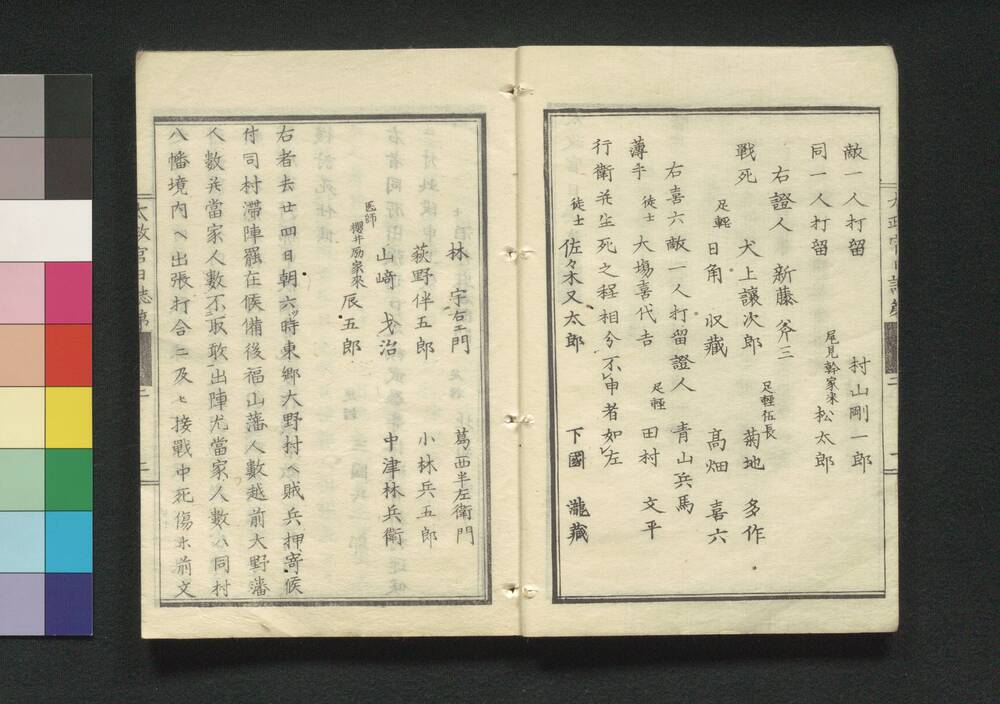 敵一人打留 村山剛一郎
同一人打留 尾見幹家来 松太郎
右證人 新藤斧三
戦死 犬上讓次郎 足軽伍長 菊地多作
足軽 日角収藏 髙畑喜六
右喜六敵一人打留證人 青山兵馬
薄手 徒士 大塲喜代吉 足軽 田村文平
行衛并生死之程相分不申者如左
徒士 佐々木又太郎 下國瀧藏
林宇右エ門 葛西半左衛門
荻野伴五郎 小林兵五郎
医師 山﨑戈治 中津林兵衛
櫻井励家来 辰五郎
右者去廿四日朝六時東郷大野村ヘ賊兵押寄候
付同村滞陣罷在候備後福山藩人數越前大野藩
人數并當家人數不取敢出陣尤當家人數ハ同村
八幡境内ヘ出張打合ニ及ヒ接戰中死傷等前文
太政官日誌第